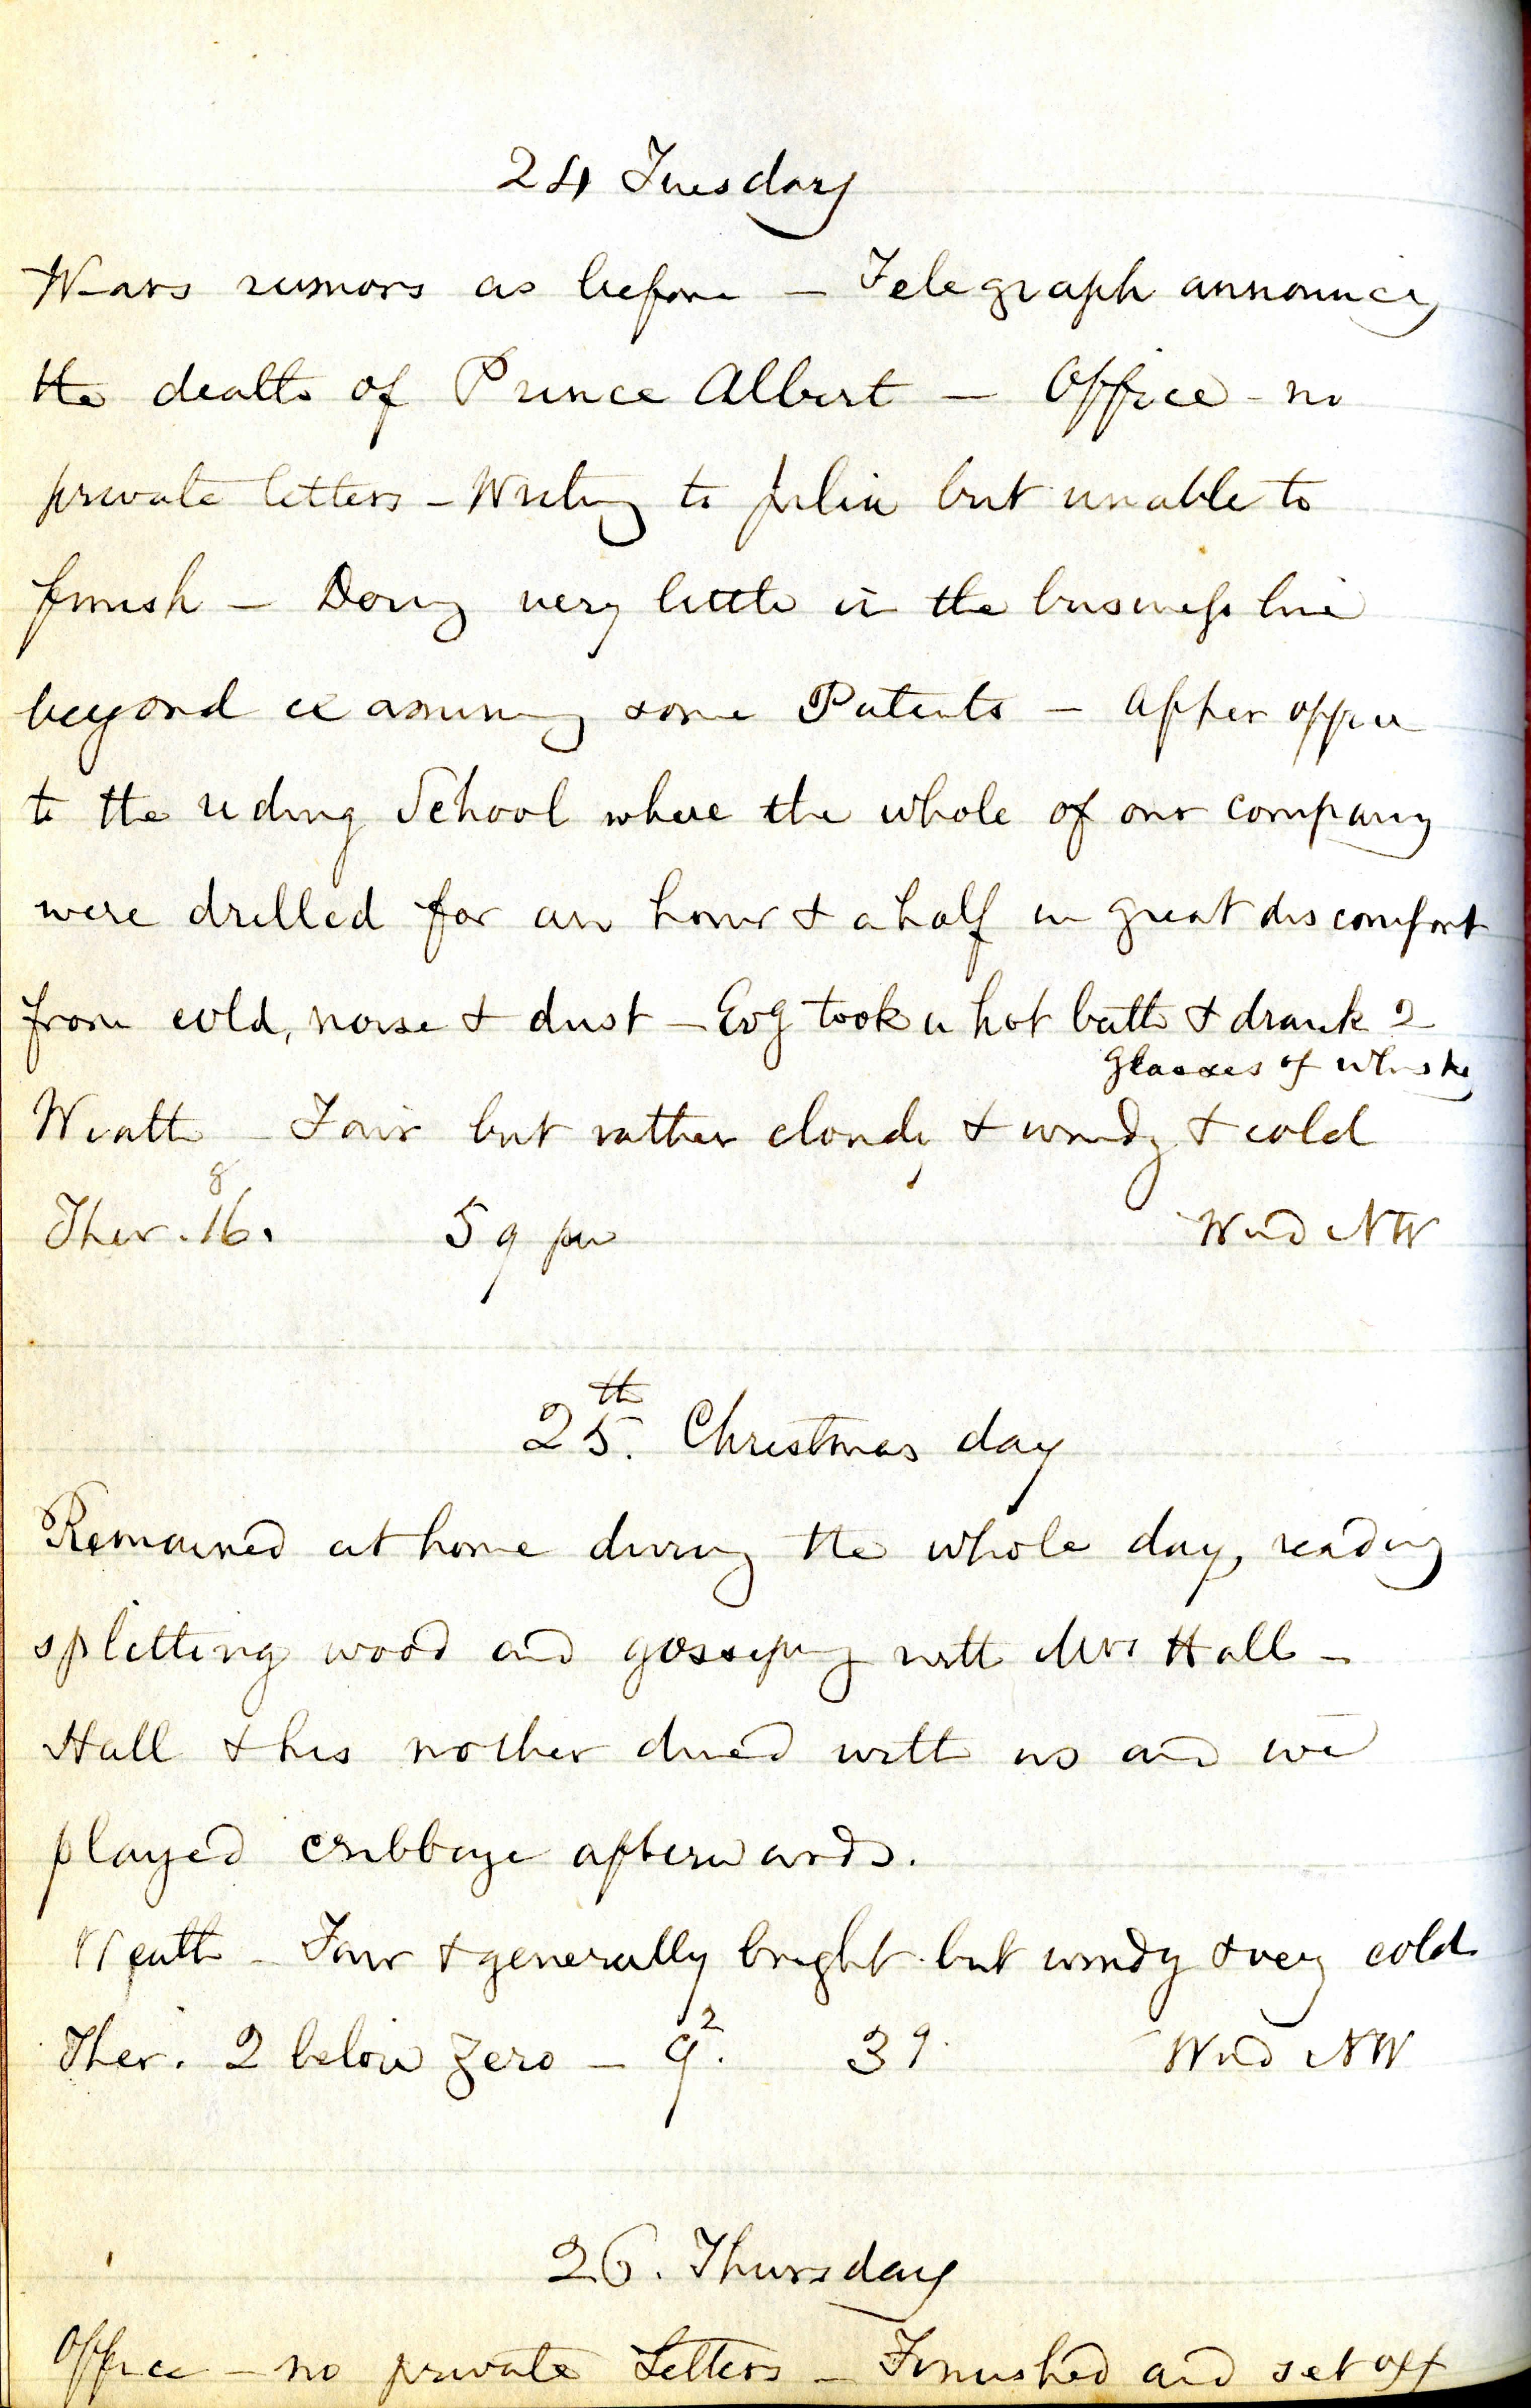 24 Tuesday
Wars rumors as before – Telegraph announcing
the death of Prince Albert – Office – no
private letters – Writing to but unable to
finish – Doing very little in the business line
beyond examining some Patents – After office
to the riding School where the whole of our company
were drilled for an hour & a half in great discomfort
from cold, noise & dust – Evg took a hot bath & drank 2
glasses of whisky
Weath – Fair but rather cloudy & windy & cold
8
Ther. 16. 5 9 pm Wind NW
25th. Christmas day
Remained at home during the whole day, reading
splitting wood and gossiping with Mrs Hall –
Hall & his mother dined with us and we
played cribbage afterwards.
Weath – Fair & generally bright but windy & very cold
Ther. 2 below zero – 9². 39. Wind NW
26. Thursday
Office – no private Letters – Finished and set off